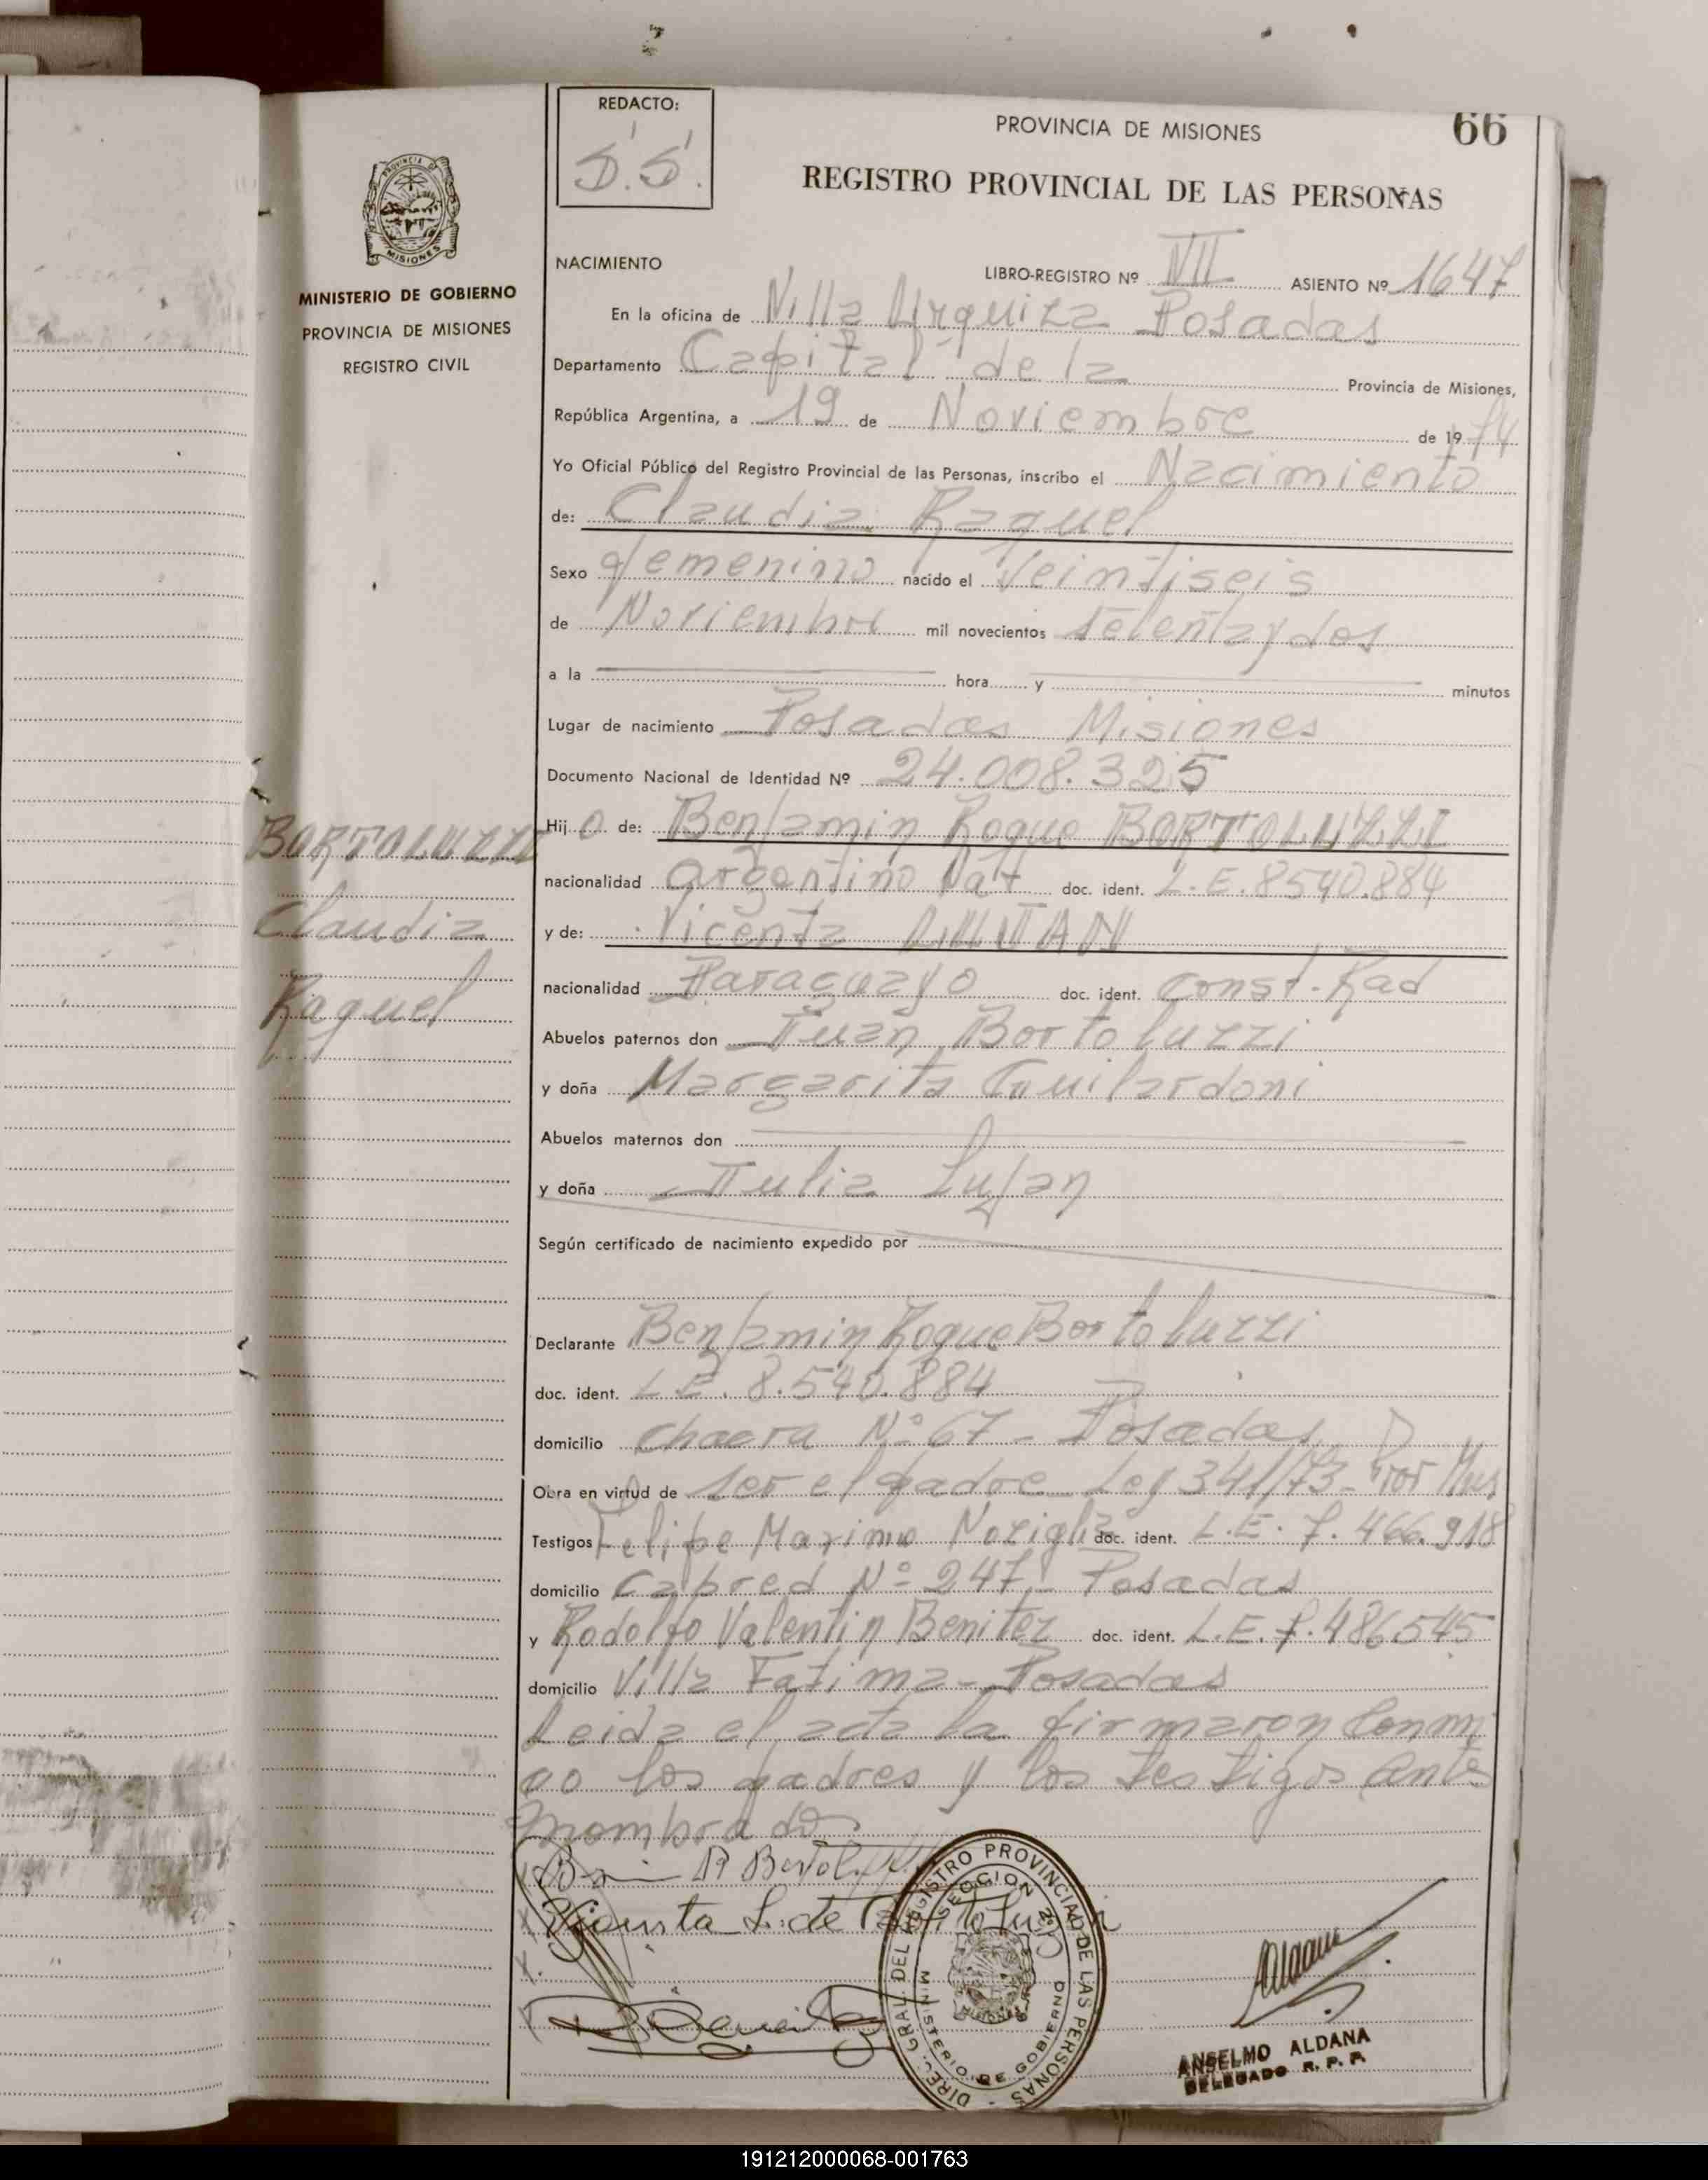 REDACTO:
S. S.
PROVINCIA DE MISIONES
66
REGISTRO PROVINCIAL DE LAS PERSONAS
PROVINCIA DE
MISIONES
MINISTERIO DE GOBIERNO
PROVINCIA DE MISIONES
REGISTRO CIVIL
NACIMIENTO
LIBRO-REGISTRO Nº VII ASIENTO Nº 1647
En la oficina de Villa Urquiza Posadas
Departamento Capital de la Provincia de Misiones,
República Argentina, a 19 de Noviembre de 1974
Yo Oficial Público del Registro Provincial de las Personas, inscribo el Nacimiento
de: Claudia Raquel
Sexo femenino nacido el Veintiseis
de Noviembre mil novecientos setentaydos
a la hora y minutos
Lugar de nacimiento Posadas Misiones
Documento Nacional de Identidad Nº 24.008.325
Hijo de: Benjamin Roque BORTOLUZZI
nacionalidad argentino Nat doc. ident. L.E. 8540.884
y de: Vicenta LUJAN
nacionalidad Paraguayo doc. ident. Const. Rad
Abuelos paternos don Juan Bortoluzzi
y doña Margarita Guilardoni
Abuelos maternos don
y doña Julia Lujan
BORTOLUZZI
Claudia
Raquel
Según certificado de nacimiento expedido por
Declarante Benjamin Roque Bortoluzzi
doc. ident. L.E. 8.540.884
domicilio Chacra Nº 67 - Posadas
Obra en virtud de ser el padre Ley 341/73 - Por
Testigos Felipe Maximo doc. ident. L.E. 7.466.918
domicilio Cabred Nº 247 Posadas
y Rodolfo Valentin Benitez doc. ident. L.E. 7.486545
domicilio Villa Fatima - Posadas
Leida el acta la firmaron Conmi
go los padres y los testigos ante
nombrados
B R Bortoluzzi
Vicenta L. de Bortoluzzi
R Benitez
DIREC. GRAL. DEL REGISTRO PROVINCIAL DE LAS PERSONAS
SECCION 2ª
MINISTERIO DE GOBIERNO
MISIONES
Aldana
ANSELMO ALDANA
DELEGADO R. P. P.
191212000068-001763